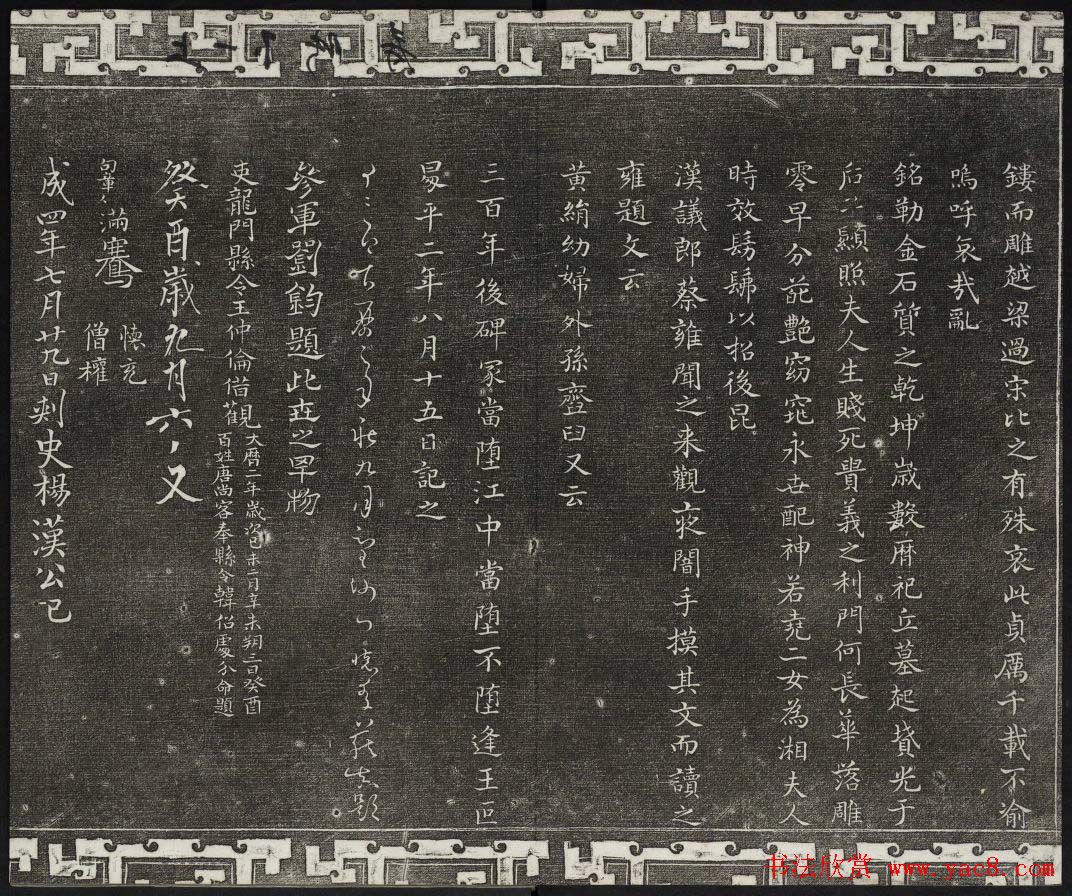 鏤而雕越梁過宋比之有殊哀此貞厲千載不渝
嗚呼哀哉亂
銘勒金石質之乾坤歲數曆祀丘墓起墳光于
后土顯照夫人生賤死貴義之利門何長華落雕
零早分葩艷窈窕永世配神若堯二女為湘夫人
時效髣髴以招後昆
漢議郎蔡雍聞之来觀夜闇手摸其文而讀之
雍題文云
黃絹幼婦外孫齏臼又云
三百年後碑冢當堕江中當堕不堕逢王叵
昇平二年八月十五日記之
九月
題
參軍劉鈞題此世之罕物
吏龍門縣令王仲倫借觀
大曆二年歲次丁未二月辛未朔三日癸酉
百姓唐尚客奉縣令韓偘處分命題
癸酉歲九月六又
滿騫
懷充
僧權
成四年七月廿九日刺史楊漢公記
书法欣赏 www.yac8.com